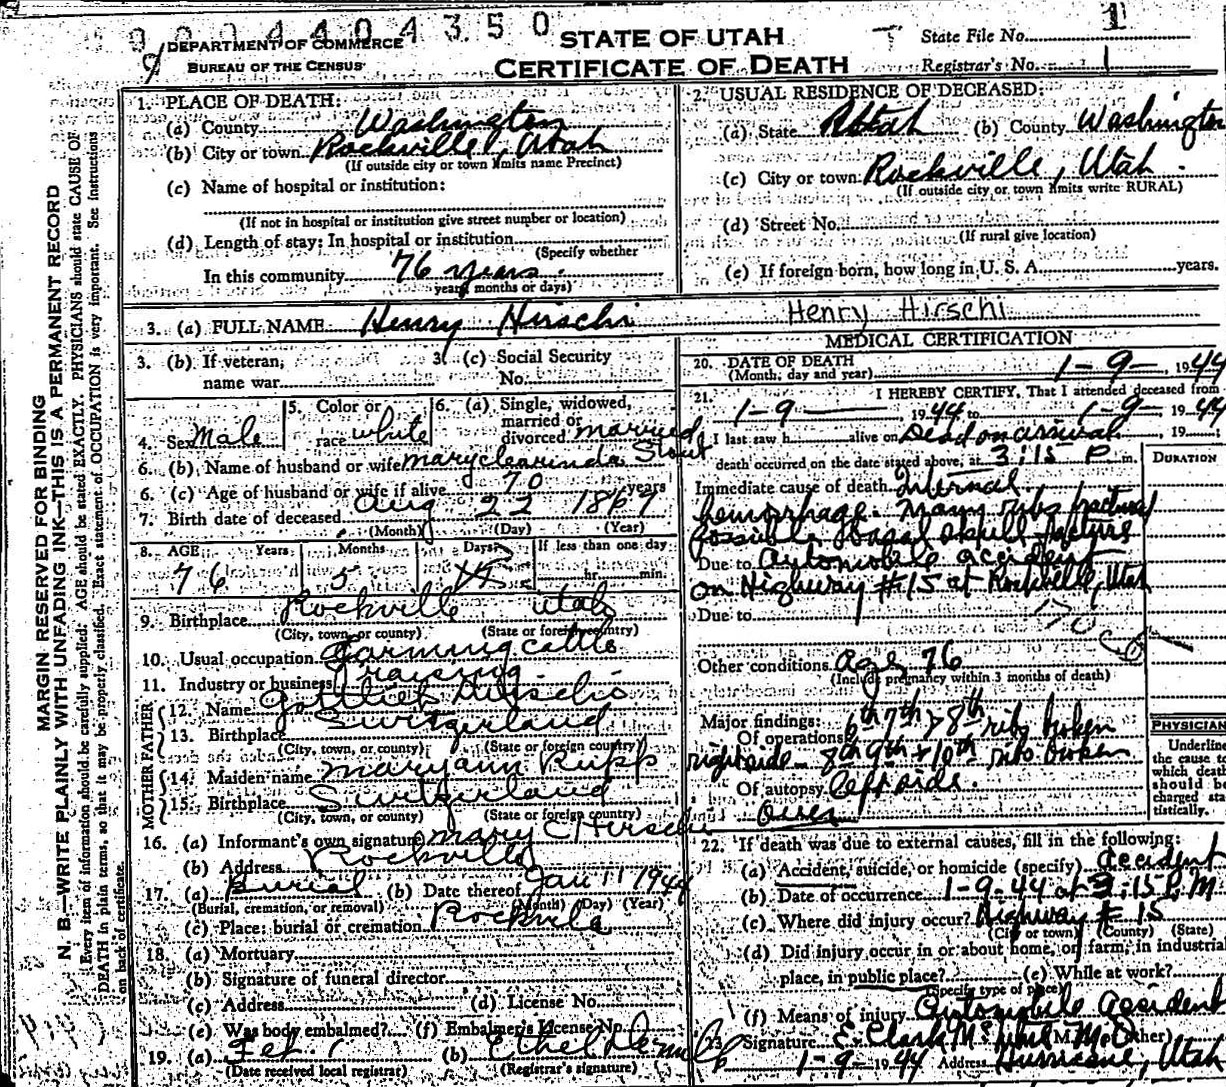 9 0 0 4 4 0 4 3 5 0
DEPARTMENT OF COMMERCE
BUREAU OF THE CENSUS
STATE OF UTAH
CERTIFICATE OF DEATH
State File No. 1
Registrar's No. 1
MARGIN RESERVED FOR BINDING
N. B.—WRITE PLAINLY WITH UNFADING INK—THIS IS A PERMANENT RECORD
Every item of information should be carefully supplied. AGE should be stated EXACTLY. PHYSICIANS should state CAUSE OF
DEATH in plain terms, so that it may be properly classified. Exact statement of OCCUPATION is very important. See instructions
on back of certificate.
1. PLACE OF DEATH:
(a) County Washington
(b) City or town Rockville, Utah
(If outside city or town limits name Precinct)
(c) Name of hospital or institution:
(If not in hospital or institution give street number or location)
(d) Length of stay: In hospital or institution
(Specify whether
In this community 76 years.
years, months or days)
2. USUAL RESIDENCE OF DECEASED:
(a) State Utah (b) County Washington
(c) City or town Rockville, Utah.
(If outside city or town limits write RURAL)
(d) Street No.
(If rural give location)
(e) If foreign born, how long in U. S. A. years.
3. (a) FULL NAME Henry Hirschi Henry Hirschi
3. (b) If veteran,
name war
3. (c) Social Security
No.
4. Sex Male
5. Color or
race white
6. (a) Single, widowed,
married or
divorced married
6. (b) Name of husband or wife Mary Clearinda Stout
6. (c) Age of husband or wife if alive 70 years
7. Birth date of deceased Aug 22 1867
(Month) (Day) (Year)
8. AGE Years Months Days If less than one day
76 5 hr. min.
9. Birthplace Rockville Utah
(City, town, or county) (State or foreign country)
10. Usual occupation Farming cattle
11. Industry or business raising
FATHER
12. Name Gottlieb Hirschi
13. Birthplace Switzerland
(City, town, or county) (State or foreign country)
MOTHER
14. Maiden name Maryann Rupp
15. Birthplace Switzerland
(City, town, or county) (State or foreign country)
16. (a) Informant's own signature Mary C Hirschi
(b) Address Rockville
17. (a) Burial (b) Date thereof Jan 11 1944
(Burial, cremation, or removal) (Month) (Day) (Year)
(c) Place: burial or cremation Rockville
18. (a) Mortuary
(b) Signature of funeral director
(c) Address (d) License No.
(e) Was body embalmed? (f) Embalmer's License No.
19. (a) Feb. 1 (b) Ethel
(Date received local registrar) (Registrar's signature)
MEDICAL CERTIFICATION
20. DATE OF DEATH 1-9-, 1944
(Month, day and year)
21. I HEREBY CERTIFY, That I attended deceased from
1-9 1944 to 1-9- 1944
I last saw h alive on Dead on arrival, 19
death occurred on the date stated above, at 3:15 P m.
DURATION
Immediate cause of death Internal
hemorrhage. Many ribs fractured
Possible Basal skull fracture
Due to Automobile accident
on Highway #15 at Rockville, Utah
Due to
170
Other conditions Age 76
(Include pregnancy within 3 months of death)
Major findings: 6th 7th & 8th ribs broken
Of operations
right side 8th 9th + 10th ribs broken
Of autopsy left side.
PHYSICIAN
Underline
the cause to
which death
should be
charged sta
tistically.
22. If death was due to external causes, fill in the following:
(a) Accident, suicide, or homicide (specify) accident
(b) Date of occurrence 1-9-44 at 3:15 P.M
(c) Where did injury occur? Highway # 15
(City or town) (County) (State)
(d) Did injury occur in or about home, or farm, in industrial
place, in public place? (e) While at work?
(Specify type of place)
(f) Means of injury Automobile accident
23. Signature E. Clark McIntire M.D. (M.D. or other)
1-9-1944 Address Hurricane, Utah